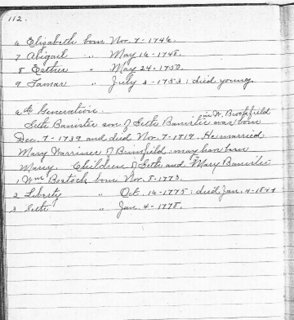 112.
6 Elizabeth born Nov. 7 - 1746.
7 Abigail " May 16 - 1748.
8 Esther " May 24 - 1750.
9 Tamar " July 3 - 1753; died young.
6th Generation.
Seth Banister son of Seth Banister was born in W. Brookfield
Dec. 7 - 1739 and died Nov. 9 - 1819. He married
Mary Warriner of Brimfield; may been born
Mary. Children of Seth and Mary Banister
1 Wm born Nov. 8 - 1773.
2 Liberty " Oct. 14 - 1775; died Jan. 4
3 Seth " Jan. 4 - 1778.